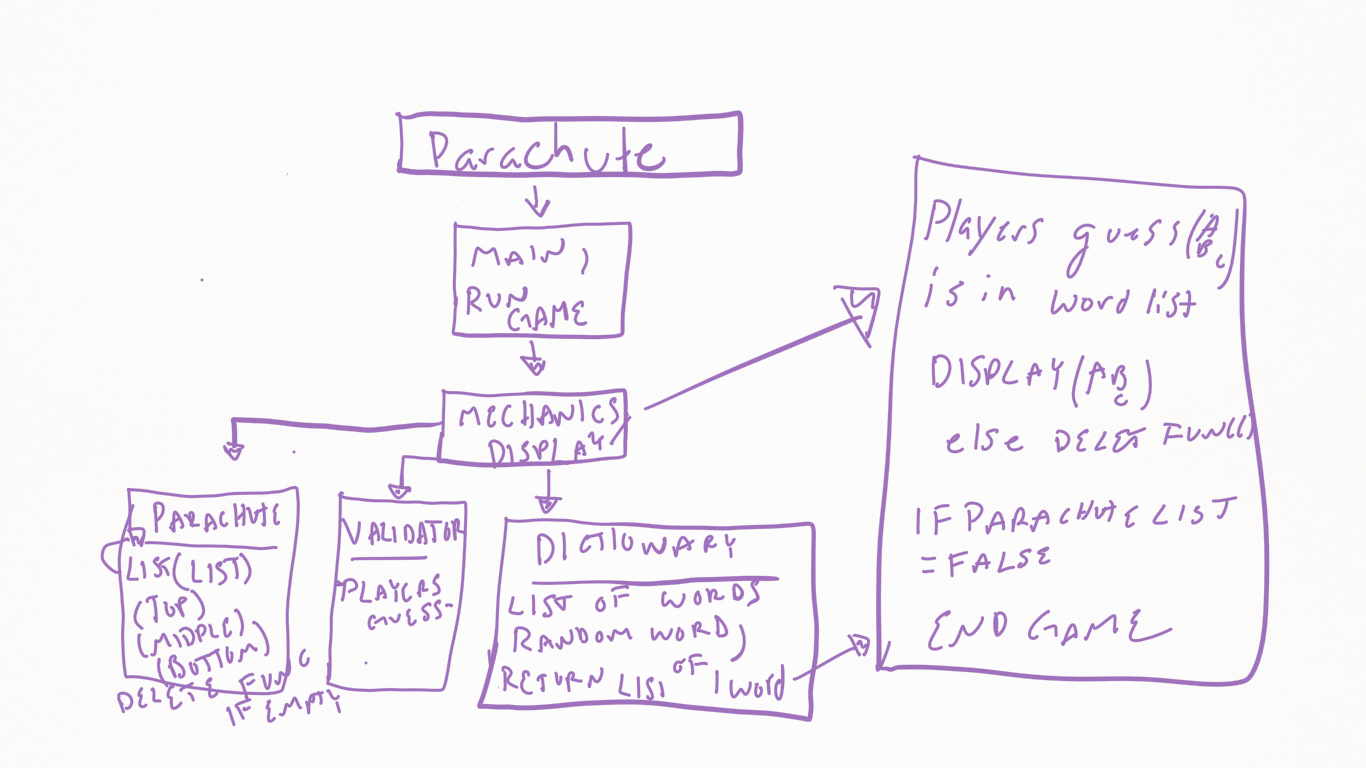 Parachute
MAIN,
RUN
GAME
MECHANICS
DISPLAY
PARACHUTE
LIST(LIST)
(TOP)
(MIDDLE)
(BOTTOM)
DELETE FUNC
IF EMPTY
VALIDATOR
PLAYERS
GUESS
DICTIOWARY
LIST OF WORDS
RANDOM WORD,
RETURN LIST OF 1 word
Players guess(A B C)
is in word list
DISPLAY(AB C)
else DELET FUNC()
IF PARACHUTE LIST
= FALSE
END GAME